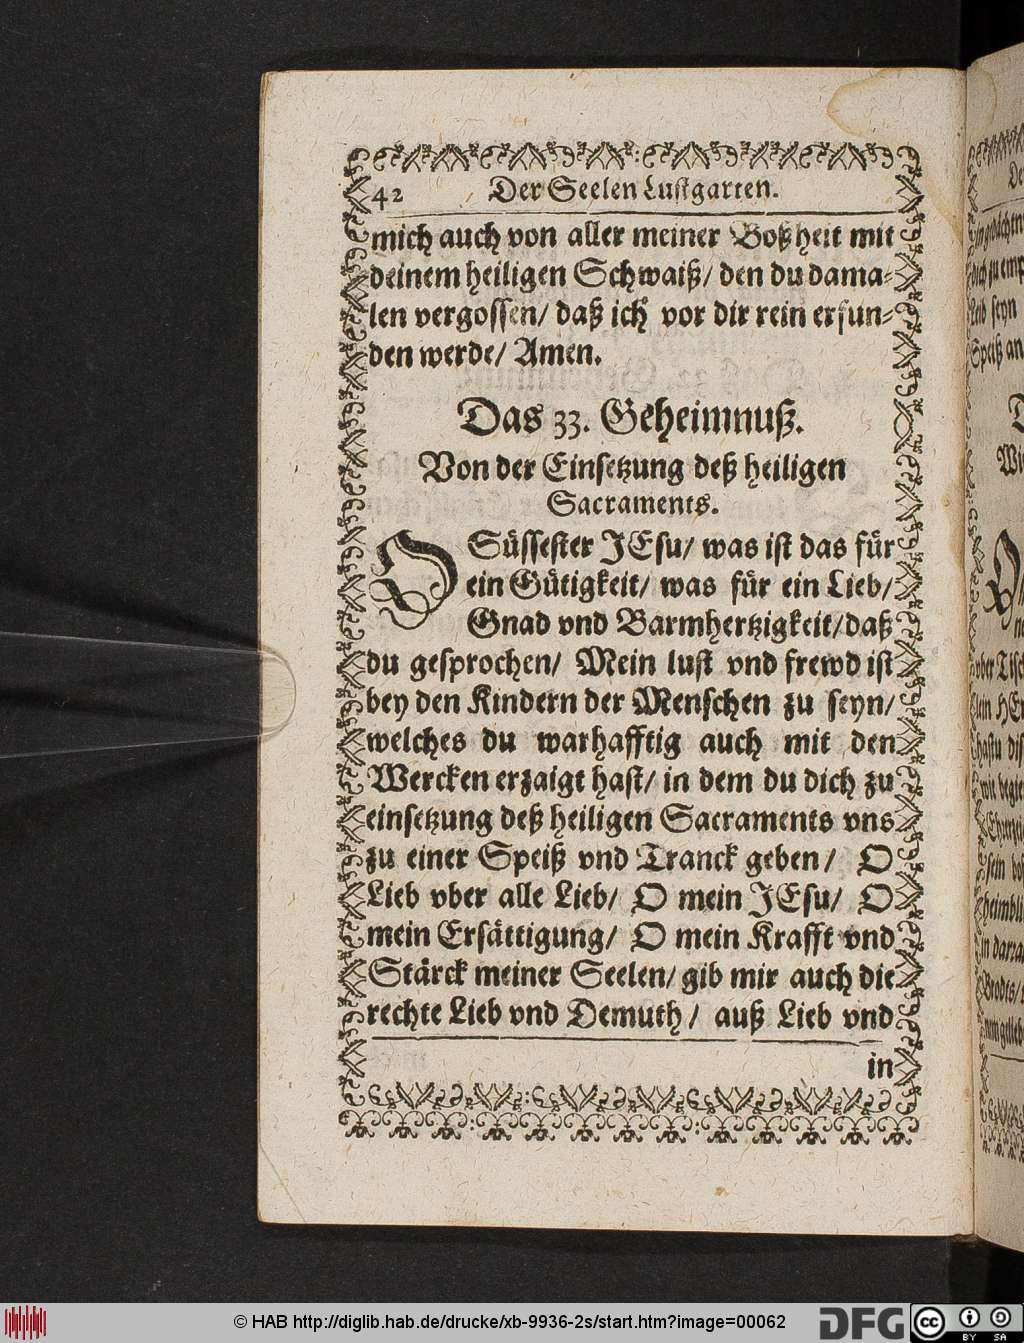 42 Der Seelen Lustgarten.
mich auch von aller meiner Boßheit mit
deinem heiligen Schwaiß/ den du dama-
len vergossen/ daß ich vor dir rein erfun-
den werde/ Amen.
Das 33. Geheimnuß.
Von der Einsetzung deß heiligen
Sacraments.
O Süssester JEsu/ was ist das für
ein Gütigkeit/ was für ein Lieb/
Gnad vnd Barmhertzigkeit/ daß
du gesprochen/ Mein lust vnd frewd ist
bey den Kindern der Menschen zu seyn/
welches du warhafftig auch mit den
Wercken erzaigt hast/ in dem du dich zu
einsetzung deß heiligen Sacraments vns
zu einer Speiß vnd Tranck geben/ O
Lieb vber alle Lieb/ O mein JEsu/ O
mein Ersättigung/ O mein Krafft vnd
Stärck meiner Seelen/ gib mir auch die
rechte Lieb vnd Demuth/ auß Lieb vnd
in
© HAB http://diglib.hab.de/drucke/xb-9936-2s/start.htm?image=00062
DFG
cc BY SA